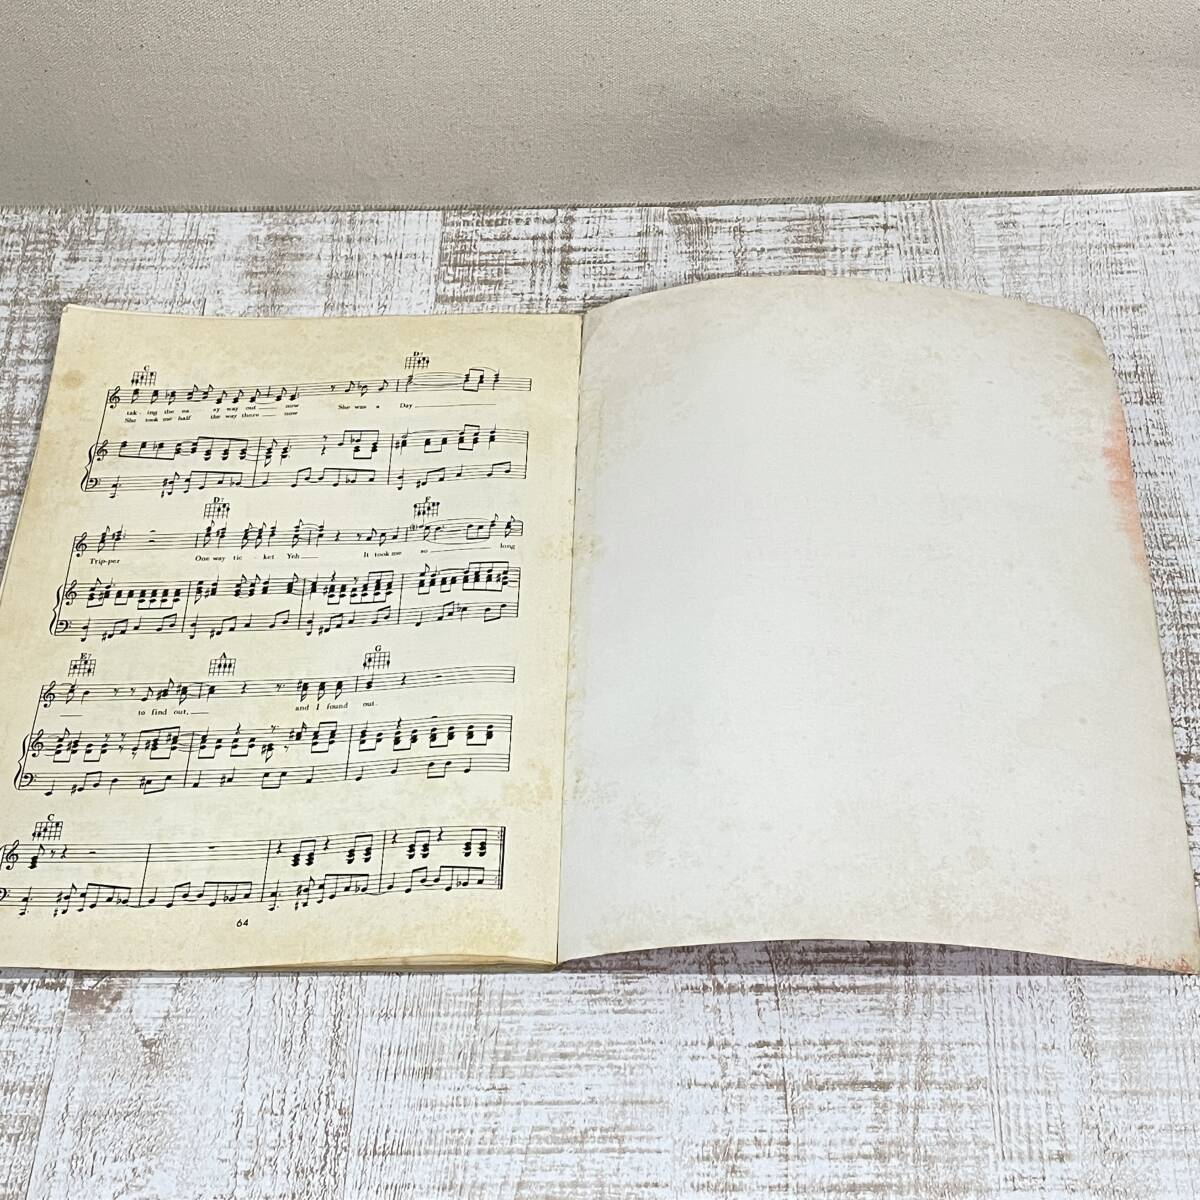 C D7
tak - ing the ea - sy way out now She was a Day
She took me half the way there now
D7 F
Trip-per One way tic - ket Yeh It took me so long
E7 A G
to find out, and I found out.
C
64